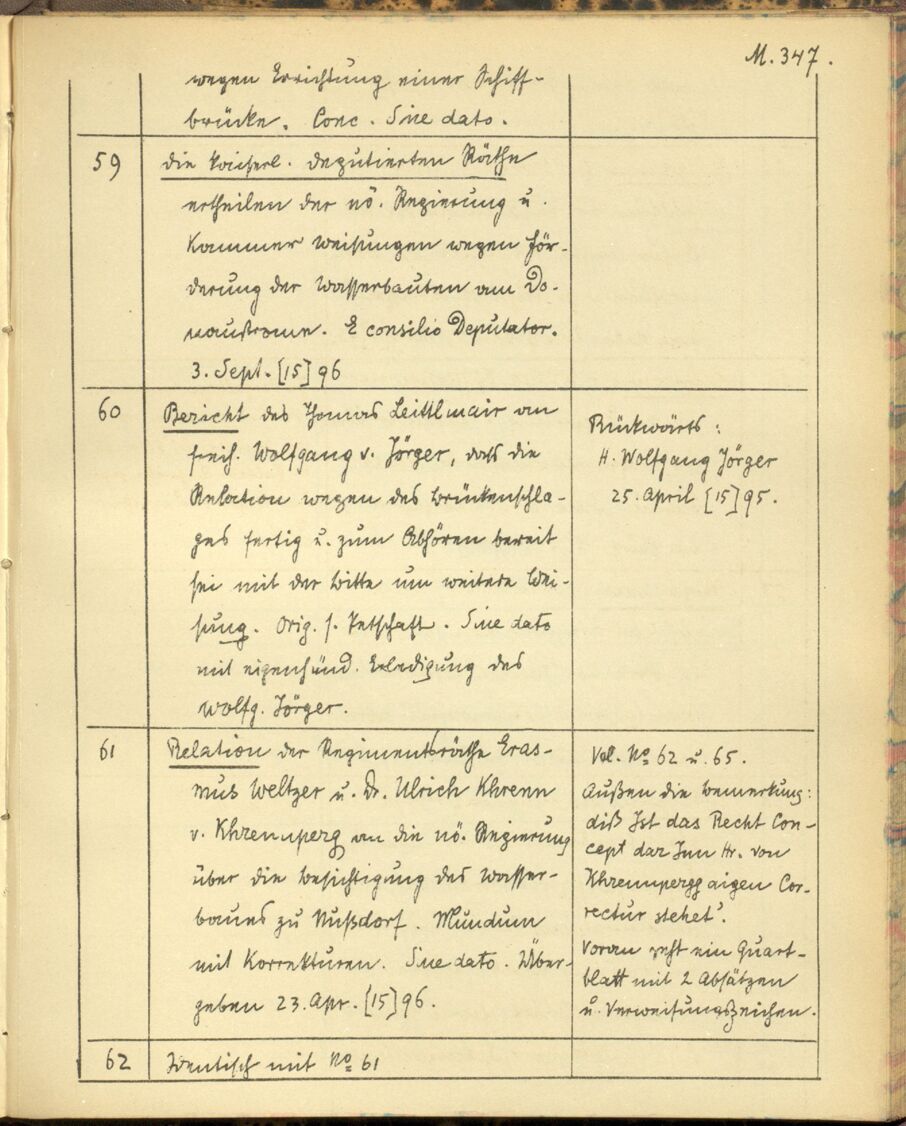 M. 347.
wegen Errichtung einer Schiff-
brücke. Conc. Sine dato.
59
die kaiserl. deputierten Räthe
ertheilen der nö. Regierung u.
Kammer Weisungen wegen För-
derung der Wasserbauten am Do-
naustrome. E consilio Deputator.
3. Sept. [15]96
60
Bericht des Thomas Leittlmair an
freih. Wolfgang v. Jörger, dass die
Relation wegen des Brückenschla-
ges fertig u. zum Abhören bereit
sei mit der Bitte um weitere Wei-
sung. Orig. s. Petschaft. Sine dato
mit eigenhänd. Erledigung des
Wolfg. Jörger.
Rückwärts:
H. Wolfgang Jörger
25. April [15]95.
61
Relation der Regimentsräthe Eras-
mus Weltzer u. Dr. Ulrich Khrenn
v. Khrennperg an die nö. Regierung
über die Besichtigung des Wasser-
baues zu Nußdorf. Mundum
mit Korrekturen. Sine dato. Über-
geben 23. Apr. [15]96.
Vgl. No 62 u. 65.
Außen die Bemerkung:
diß Ist das Recht Con-
cept dar Inn Hr. von
Khrennpergg aigen Cor-
rectur stehet'.
Voran geht ein Quart-
blatt mit 2 Absätzen
u. Verweisungszeichen.
62
Identisch mit No 61